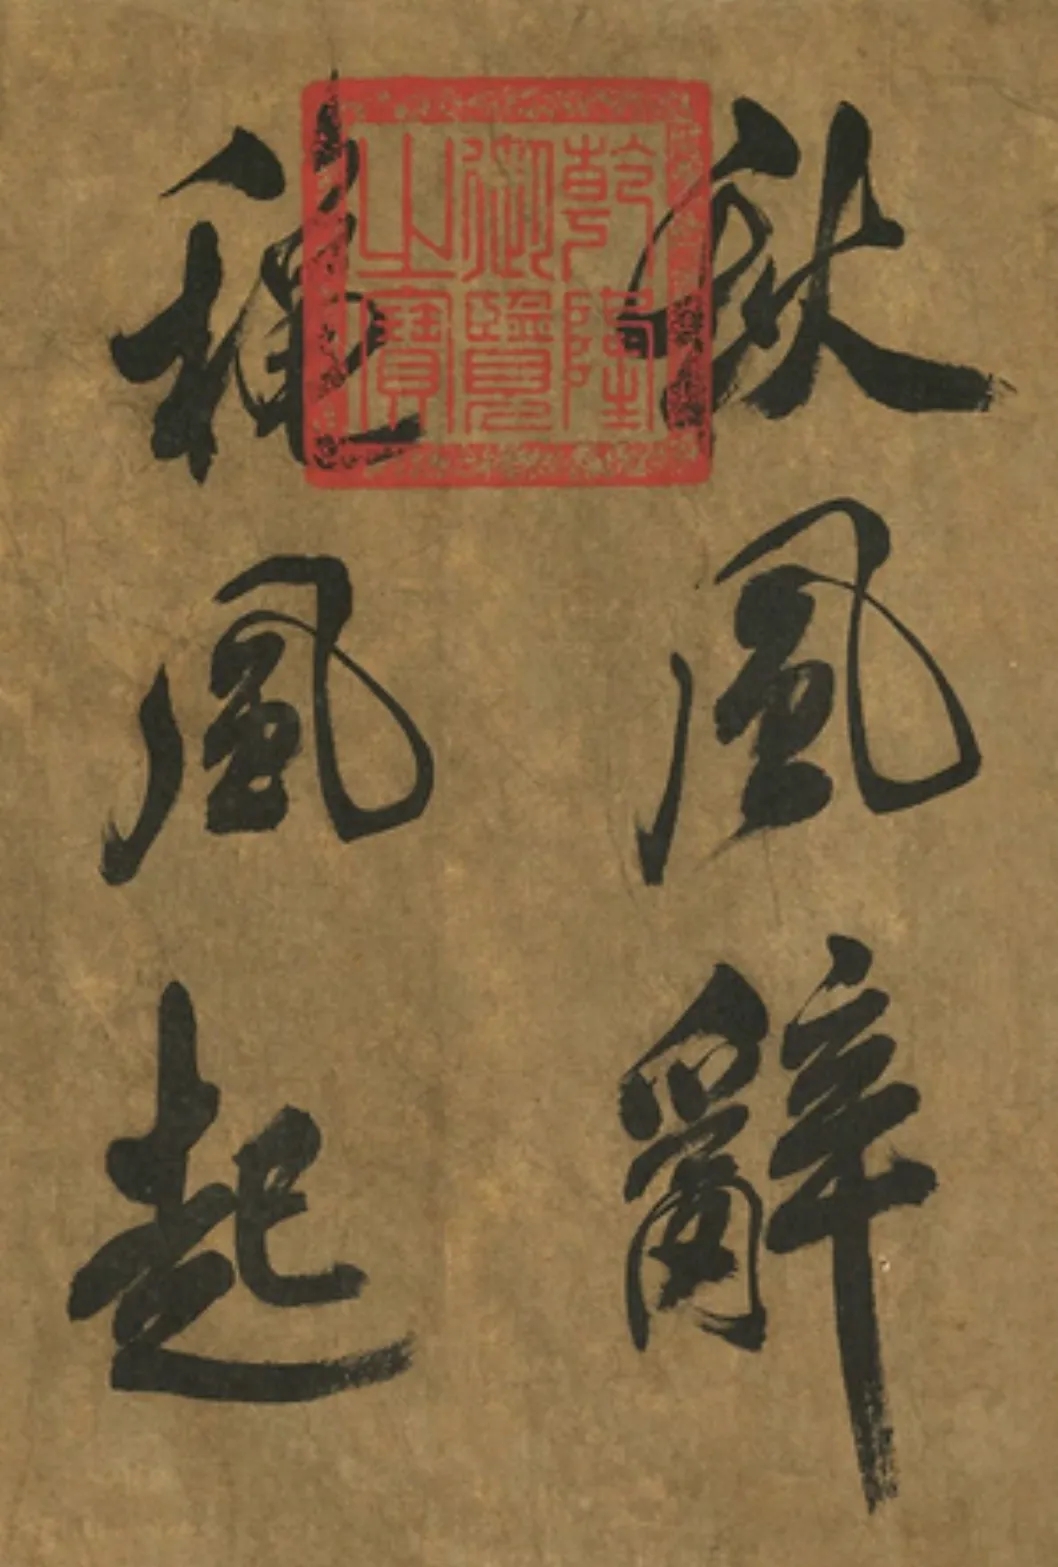 秋風辭
穐風起
乾隆
御覽
之寶